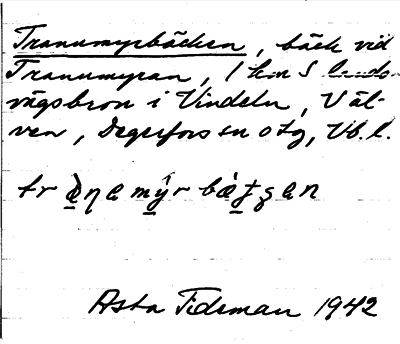 Tranumyrbäcken, bäck vid
Tranumyran, 1 km S lands-
vägsbron i Vindeln, V äl-
ven, Degerfors sn o tg, Vb. l.
Asta Tideman 1942